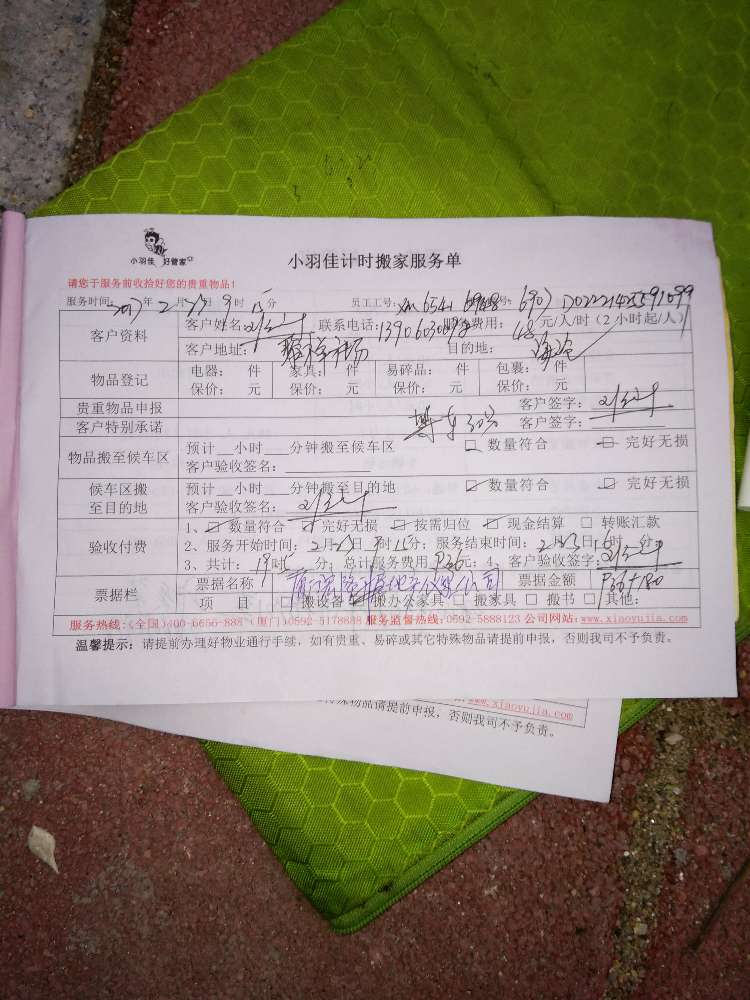 小羽佳 好管家
小羽佳计时搬家服务单
请您于服务前收拾好您的贵重物品!
服务时间: 2017 年 2 月 23 9 时 15 分 员工工号: 6541 6948 号: 6907 D02221425591099
客户资料 客户姓名: 联系电话: 服务费用: 48 元/人/时(2小时起/人)
客户地址: 目的地: 海沧
物品登记 电器: 件 家具: 件 易碎品: 件 包裹: 件
保价: 元 保价: 元 保价: 元 保价: 元
贵重物品申报 客户签字:
客户特别承诺 客户签字:
物品搬至候车区 预计__小时___分钟搬至候车区 □ 数量符合 □ 完好无损
客户验收签名:
候车区搬至目的地 预计__小时___分钟搬至目的地 □ 数量符合 □ 完好无损
客户验收签名:
验收付费 1、□ 数量符合 □ 完好无损 □ 按需归位 □ 现金结算 □ 转账汇款
2、服务开始时间: 2月23日9时15分; 服务结束时间: 2月23日 时 分;
3、共计: 时 分; 总计服务费用 元; 4、客户验收签字:
票据栏 票据名称 票据金额
项 目 □搬设备 □搬办公家具 □ 搬家具 □ 搬书 □ 其他:
服务热线:(全国)400-6656-888 (厦门)0592-5178688 服务监督热线:0592-5888123 公司网站:www.xiaoyujia.com
温馨提示: 请提前办理好物业通行手续, 如有贵重、易碎或其它特殊物品请提前申报, 否则我司不予负责。
www.xiaoyujia.com
殊物品请提前申报, 否则我司不予负责。